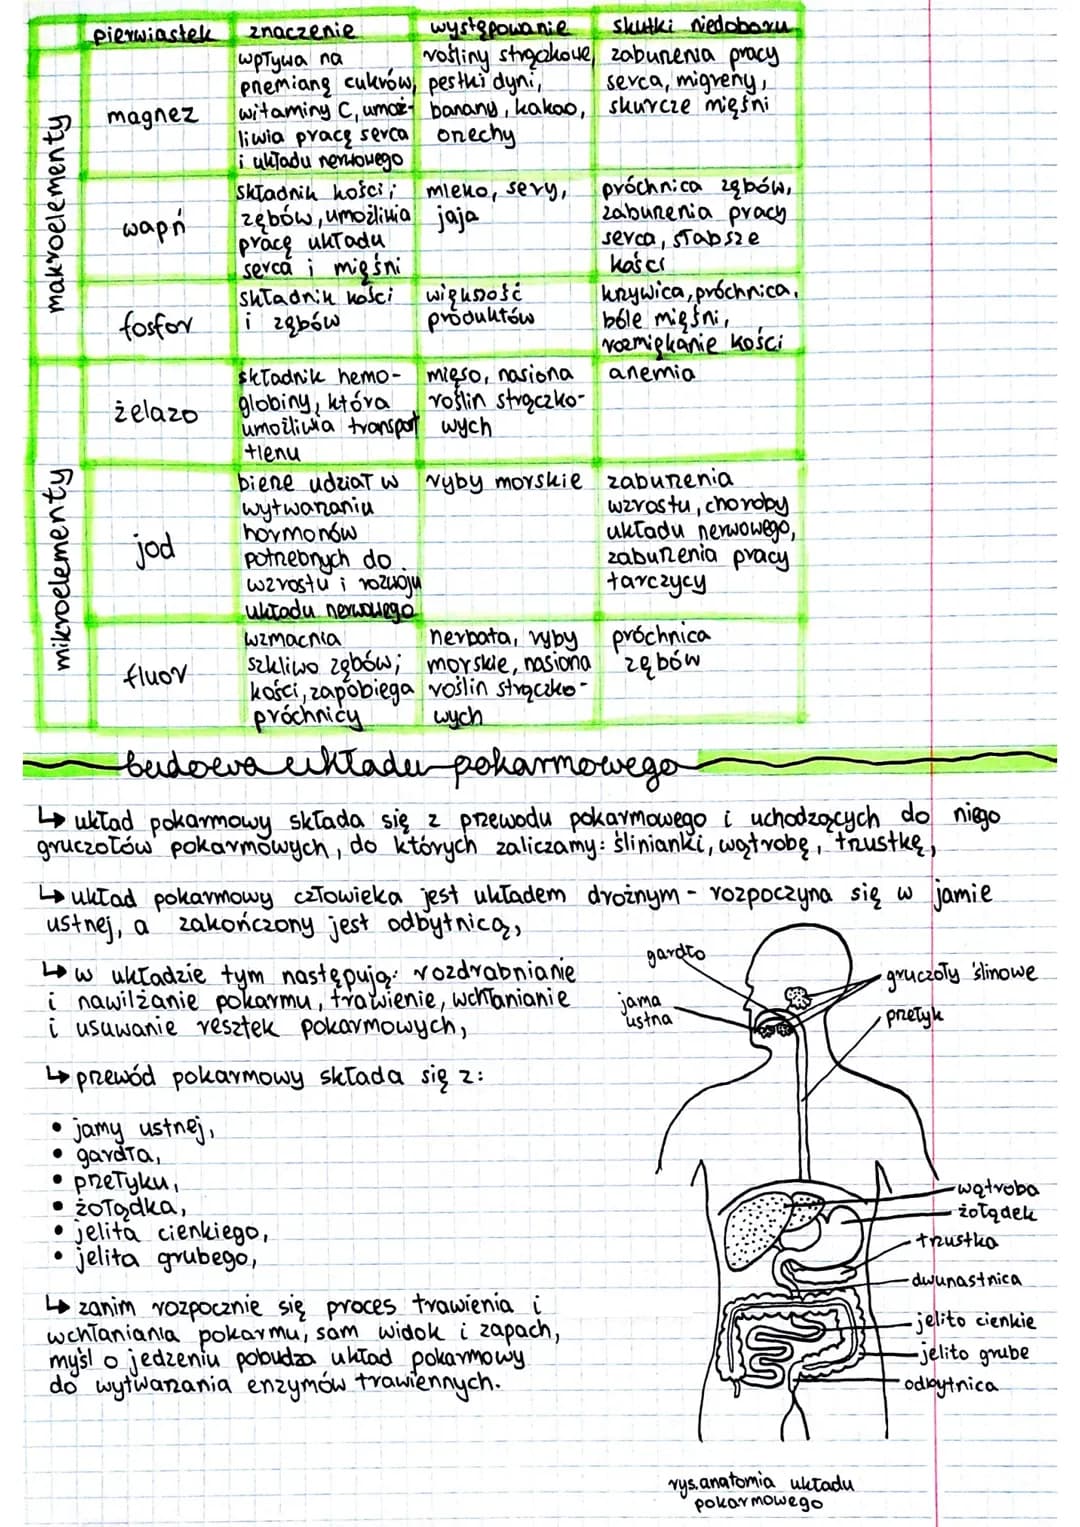 pierwiastek znaczenie występowanie skutki niedoboru
makroelementy
magnez
wpływa na
przemianę cukrów,
witaminy C, umoż-
liwia pracę serca
i układu nerwowego
rośliny strączkowe,
pestki dyni,
banany, kakao,
orzechy
zaburzenia pracy
serca, migreny,
skurcze mięśni
wapń
składnik kości i
zębów, umożliwia
pracę układu
serca i mięśni
mleko, sery,
jaja
próchnica zębów,
zaburzenia pracy
serca, słabsze
kości
fosfor
składnik kości
i zębów
większość
produktów
krzywica, próchnica,
bóle mięśni,
rozmiękanie kości
mikroelementy
żelazo
składnik hemo-
globiny, która
umożliwia transport
tlenu
mięso, nasiona
roślin strączko-
wych
anemia
jod
bierze udział w
wytwarzaniu
hormonów
potrzebnych do
wzrostu i rozwoju
układu nerwowego
ryby morskie
zaburzenia
wzrostu, choroby
układu nerwowego,
zaburzenia pracy
tarczycy
fluor
wzmacnia
szkliwo zębów i
kości, zapobiega
próchnicy
herbata, ryby
morskie, nasiona
roślin strączko-
wych
próchnica
zębów
budowa układu pokarmowego
↳ układ pokarmowy składa się z przewodu pokarmowego i uchodzących do niego
gruczołów pokarmowych, do których zaliczamy: ślinianki, wątrobę, trzustkę,
↳ układ pokarmowy człowieka jest układem drożnym - rozpoczyna się w jamie
ustnej, a zakończony jest odbytnicą,
↳ w układzie tym następują: rozdrabnianie
i nawilżanie pokarmu, trawienie, wchłanianie
i usuwanie resztek pokarmowych,
↳ przewód pokarmowy składa się z:
• jamy ustnej,
• gardła,
• przełyku,
• żołądka,
• jelita cienkiego,
• jelita grubego,
↳ zanim rozpocznie się proces trawienia i
wchłaniania pokarmu, sam widok i zapach,
myśl o jedzeniu pobudza układ pokarmowy
do wytwarzania enzymów trawiennych.
gardło
jama
ustna
gruczoły ślinowe
przełyk
wątroba
żołądek
trzustka
dwunastnica
jelito cienkie
jelito grube
odbytnica
rys. anatomia układu
pokarmowego